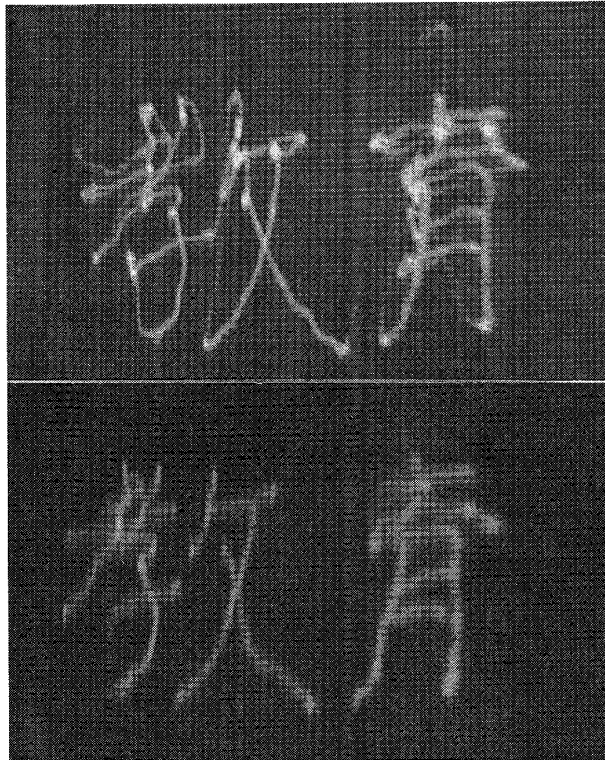 教育
教育